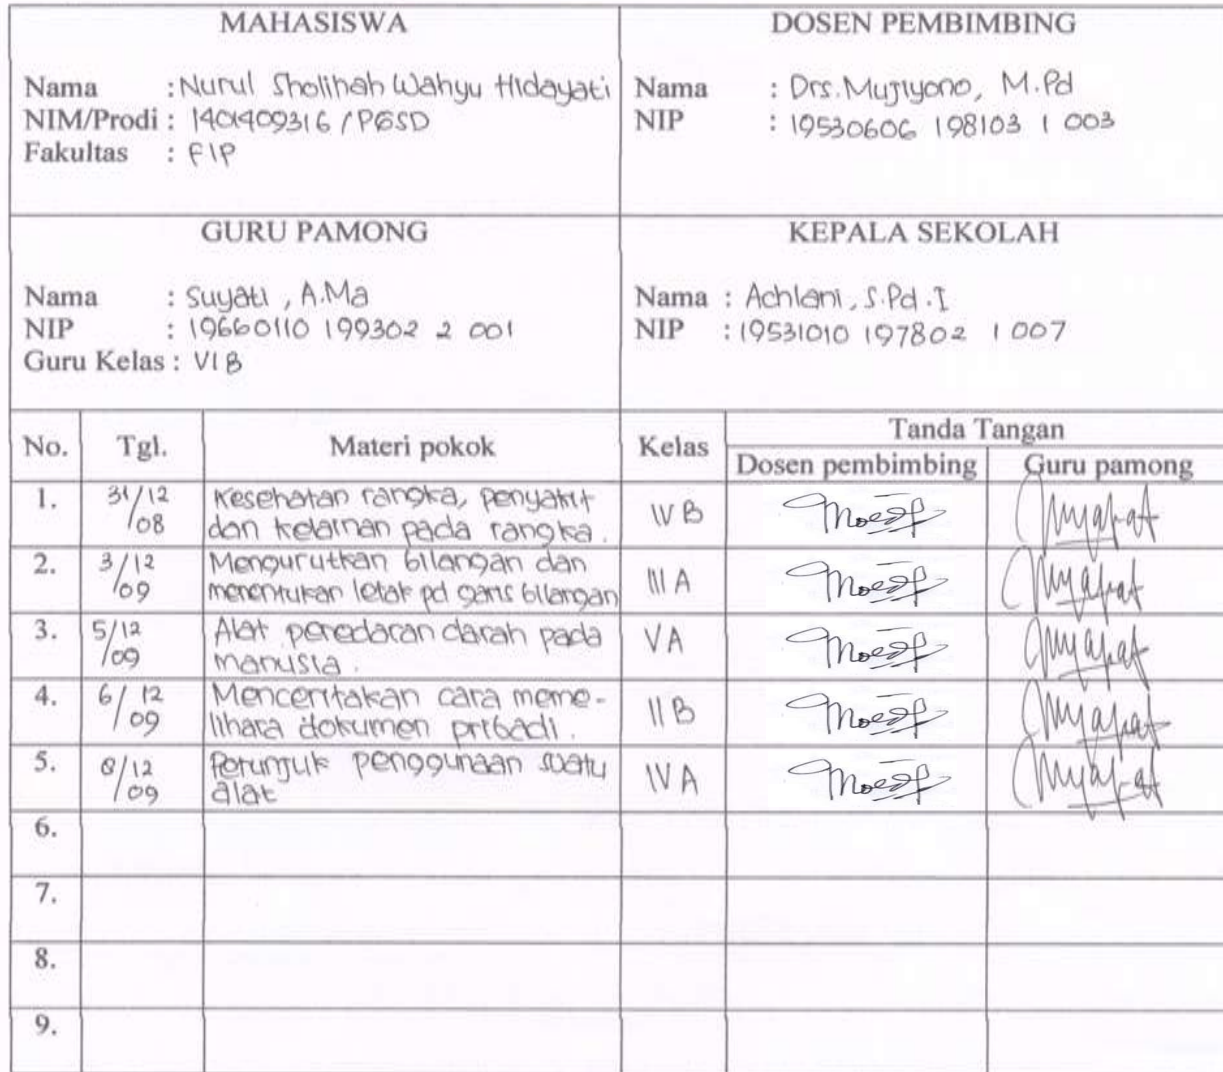 MAHASISWA
Nama : Nurul Sholihah Wahyu Hidayati
NIM/Prodi : 1401409316 / PGSD
Fakultas : FIP
DOSEN PEMBIMBING
Nama : Drs. Mujiyono, M.Pd
NIP : 19530606 198103 1 003
GURU PAMONG
Nama : Suyati, A.Ma
NIP : 19660110 199302 2 001
Guru Kelas : VI B
KEPALA SEKOLAH
Nama : Achlani, S.Pd.I
NIP : 19531010 197802 1 007
No. Tgl. Materi pokok Kelas Tanda Tangan
Dosen pembimbing Guru pamong
1. 31/12 Kesehatan rangka, penyakit IV B
/08 dan kelainan pada rangka.
2. 3/12 Mengurutkan bilangan dan III A
/09 menentukan letak pd garis bilangan
3. 5/12 Alat peredaran darah pada V A
/09 manusia.
4. 6/12 Menceritakan cara meme- II B
/09 lihara dokumen pribadi.
5. 8/12 Petunjuk penggunaan suatu IV A
/09 alat
6.
7.
8.
9.